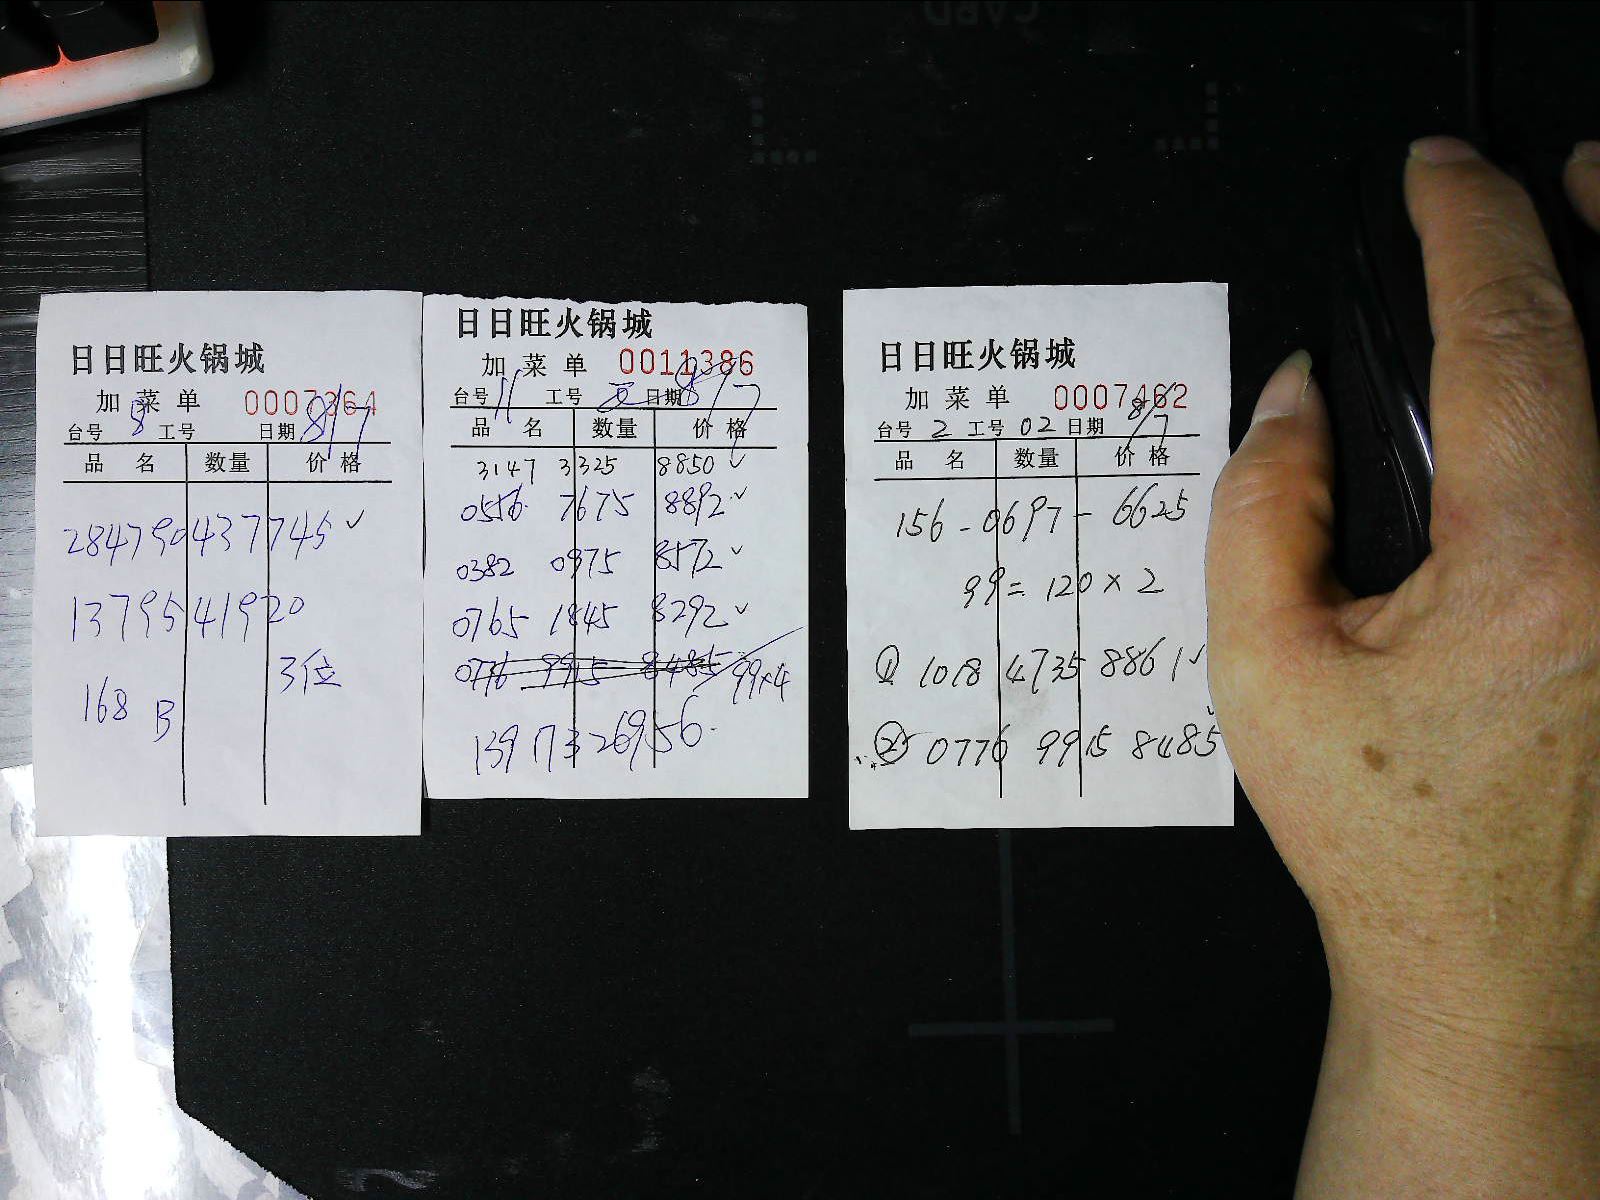 CARD
日日旺火锅城
加菜单 0007364
台号 8 工号 日期 8/7
品名 数量 价格
284790437745 ✓
1379541920
3位
168 B
日日旺火锅城
加菜单 0011386
台号 11 工号 日期 8/7
品名 数量 价格
3147 3325 8850 ✓
0556 7675 8892 ✓
0382 0975 8572 ✓
0765 1845 8292 ✓
0776 9915 8485 99×4
139 173 26956
日日旺火锅城
加菜单 0007462
台号 2 工号 02 日期 8/7
品名 数量 价格
156-0697-6625
99=120×2
① 1018 4735 8861 ✓
② 0776 9915 8485 ✓